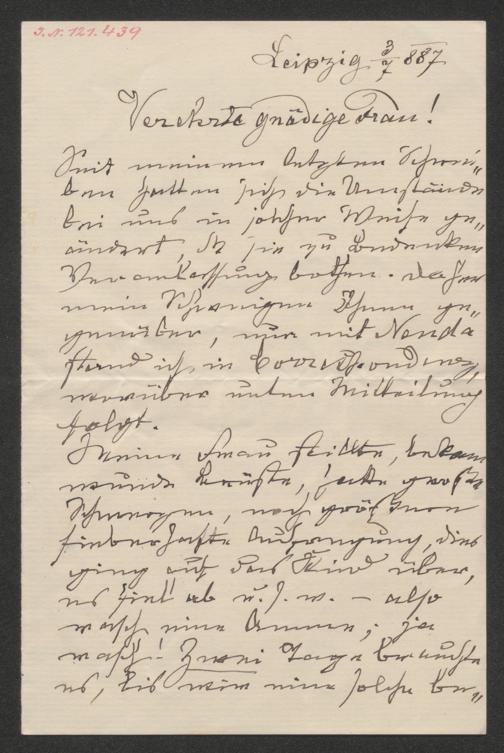 I.N. 121.439
Leipzig 3/7 887
Verehrte gnädige Frau!
Seit meinem letzten Schrei„
ben hatten sich die Umstände
bei uns in solcher Weise ge„
ändert, d sie zu Bedenken
Veranlassung bothen. Daher
mein Schweigen Ihnen ge„
genüber, nur mit Nenda
stand ich in Correspondenz,
worüber unten Mitteilung
folgt.
Meine Frau stillte, bekam
wunde Brüste, hatte große
Schmerzen, noch größere
fieberhafte Aufregung, dies
ging auf das Kind über,
es fiel ab u. s. w. – also
rasch eine Amme; ja
rasch! Zwei Tage brauchte
es, bis wir eine solche be„